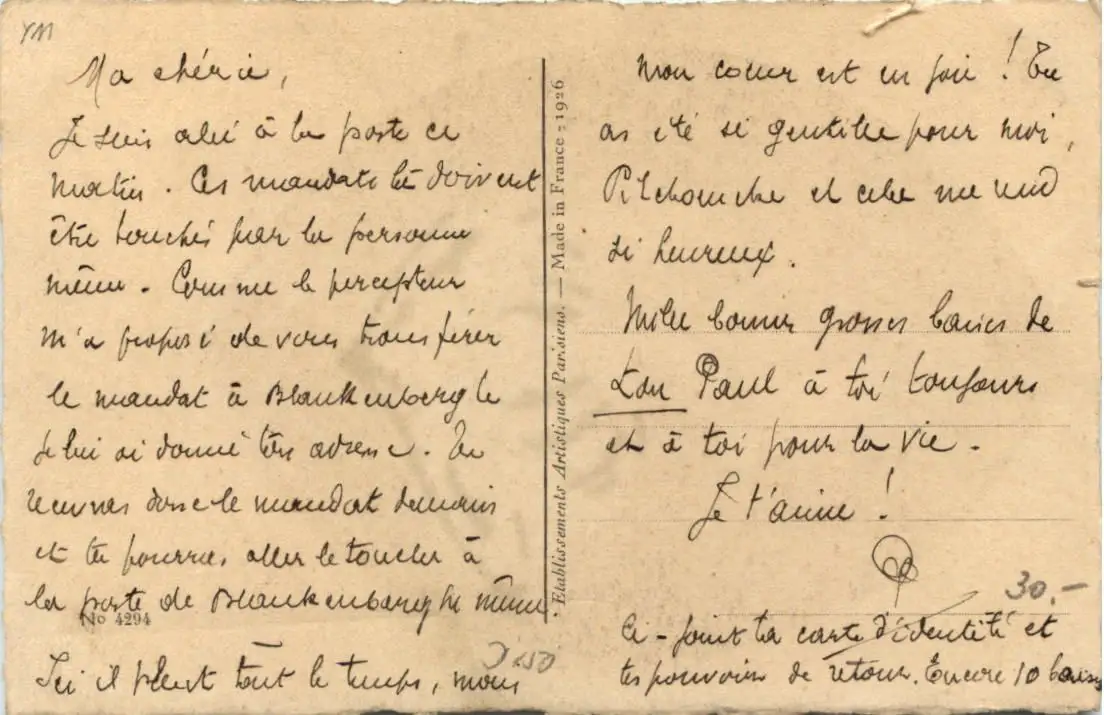 YM
Ma chérie,
Je suis allé à la poste ce
matin. Ces mandats là doivent
être touchés par la personne
même. Comme le percepteur
m'a proposé de vous transférer
le mandat à Blankenberghe
je lui ai donné ton adresse. Tu
recevras donc le mandat demain
et tu pourras aller le toucher à
la poste de Blankenberghe même
No 4294
Ici il pleut tout le temps, mais
Etablissements Artistiques Parisiens. — Made in France - 1926
mon coeur est en joie ! Tu
as été si gentille pour moi,
et cela me rend
si heureux.
Mille bonnes grosses baises de
ton Paul à toi toujours
et à toi pour la vie.
Je t'aime !
30.-
Ci-joint ta carte d'identité et
tes pouvoirs de retour. Encore 10 baises